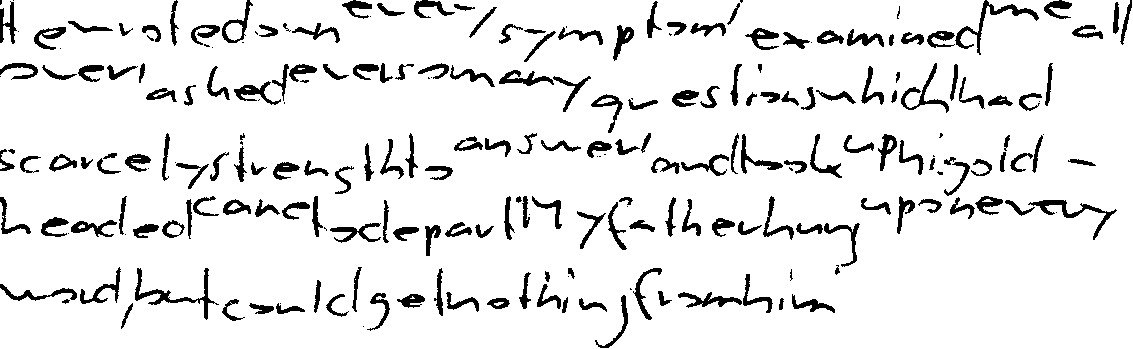 He wrote down every symptom, examined me all
over, asked ever so many questions which I had
scarcely strength to answer, and took up his gold-
headed cane to depart. My father hung upon every
word, but could get nothing from him